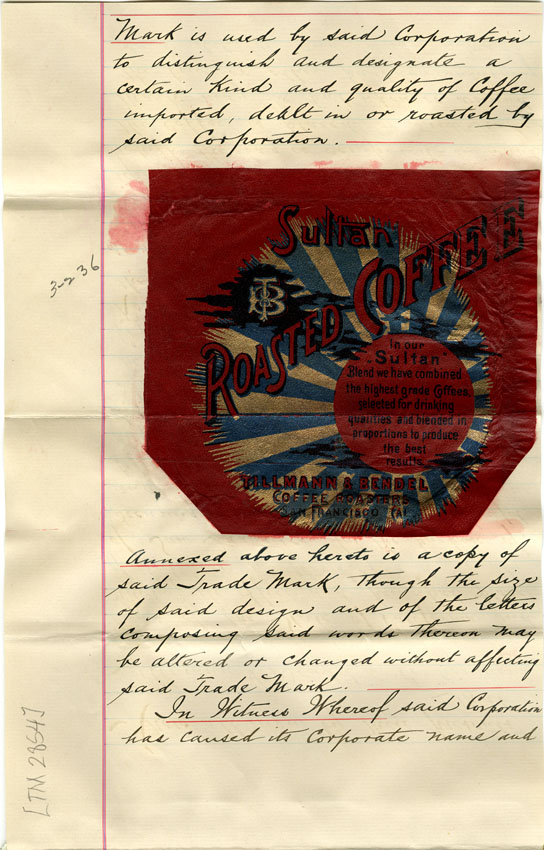 Mark is used by said Corporation
to distinguish and designate a
certain kind and quality of Coffee
imported, dealt in or roasted by
said Corporation.
3-2 36
Sultan
TB
ROASTED COFFEE
In our
"Sultan"
Blend we have combined
the highest grade Coffees
selected for drinking
qualities and blended in
proportions to produce
the best
results.
TILLMANN & BENDEL
COFFEE ROASTERS
SAN FRANCISCO CAL
Annexed above hereto is a copy of
said Trade Mark, though the size
of said design and of the letters
composing said words thereon may
be altered or changed without affecting
said Trade Mark.
In Witness Whereof said Corporation
has caused its Corporate name and
[TM 2854]